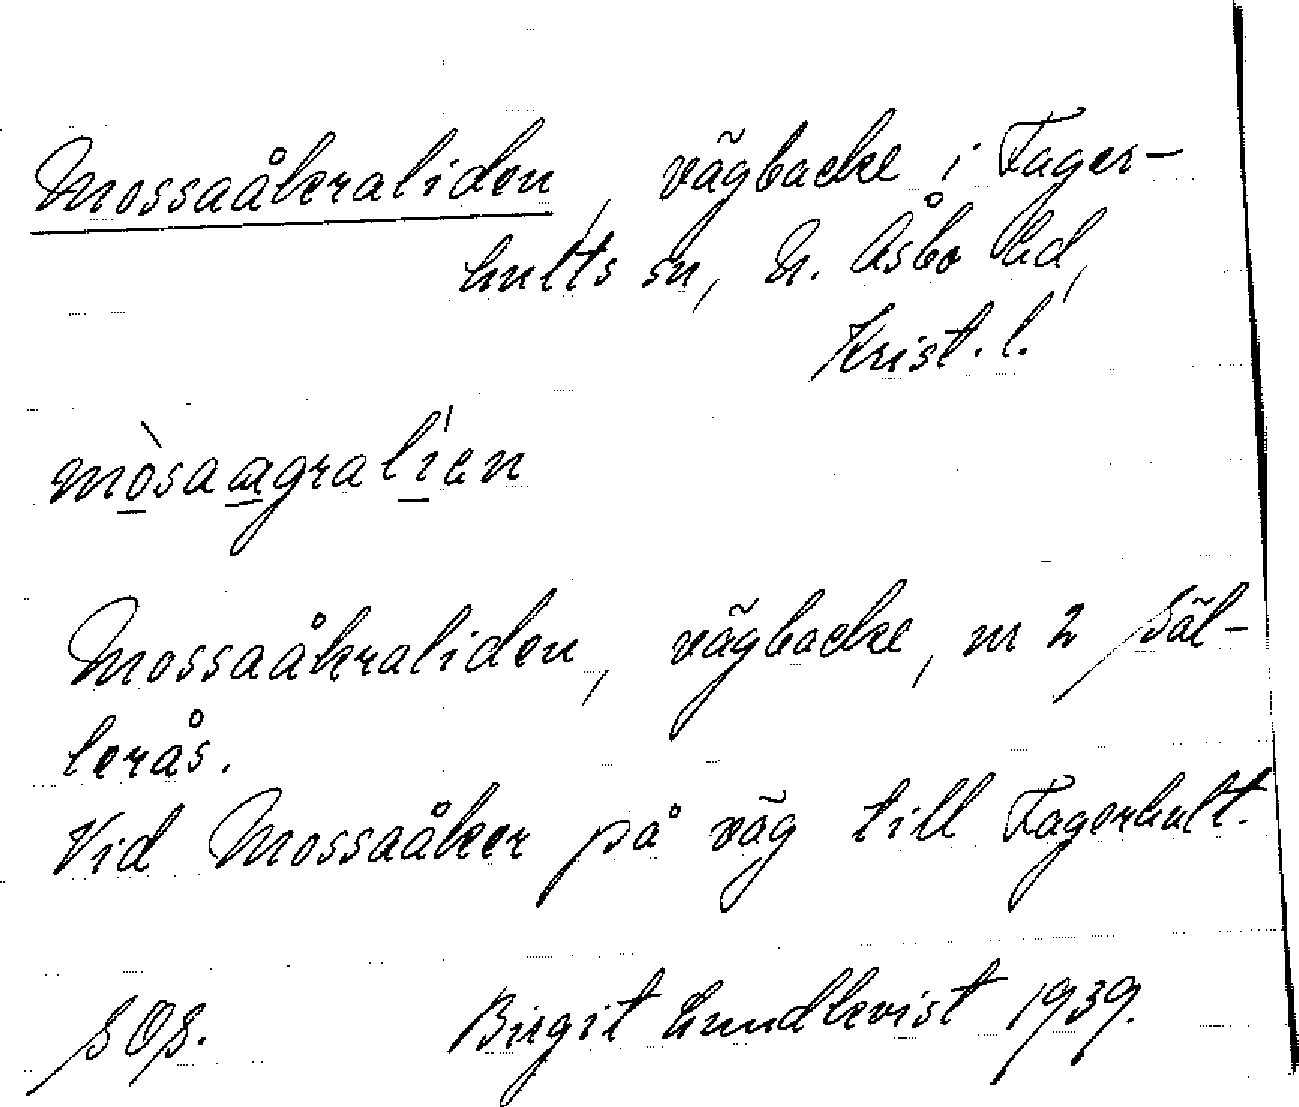 Mossaåkraliden, vägbacke i Fager-
hults sn, N. Åsbo hd,
Krist. l.
mòsaagralíen
Mossaåkraliden, vägbacke, nr 2 Säl-
lerås.
Vid Mossaåker på väg till Fagerhult.
SOS. Birgit Lundkvist 1939.